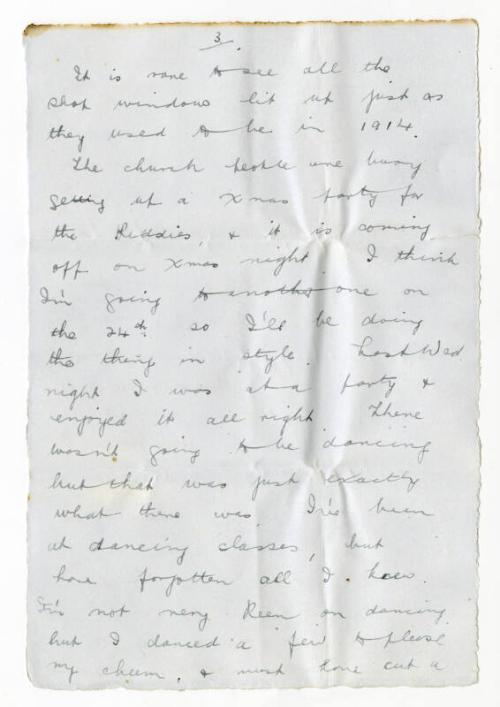 3.
It is rare to see all the
shop windows lit up just as
they used to be in 1914.
The church people are busy
getting up a Xmas party for
the kiddies, & it is coming
off on Xmas night. I think
I'm going to another one on
the 24th so I'll be doing
the thing in style. Last Wed.
night I was at a party &
enjoyed it all right. There
wasn't going to be dancing
but that was just exactly
what there was. I've been
at dancing classes, but
have forgotten all I knew.
I'm not very keen on dancing
but I danced a few to please
my chum, & must have cut a